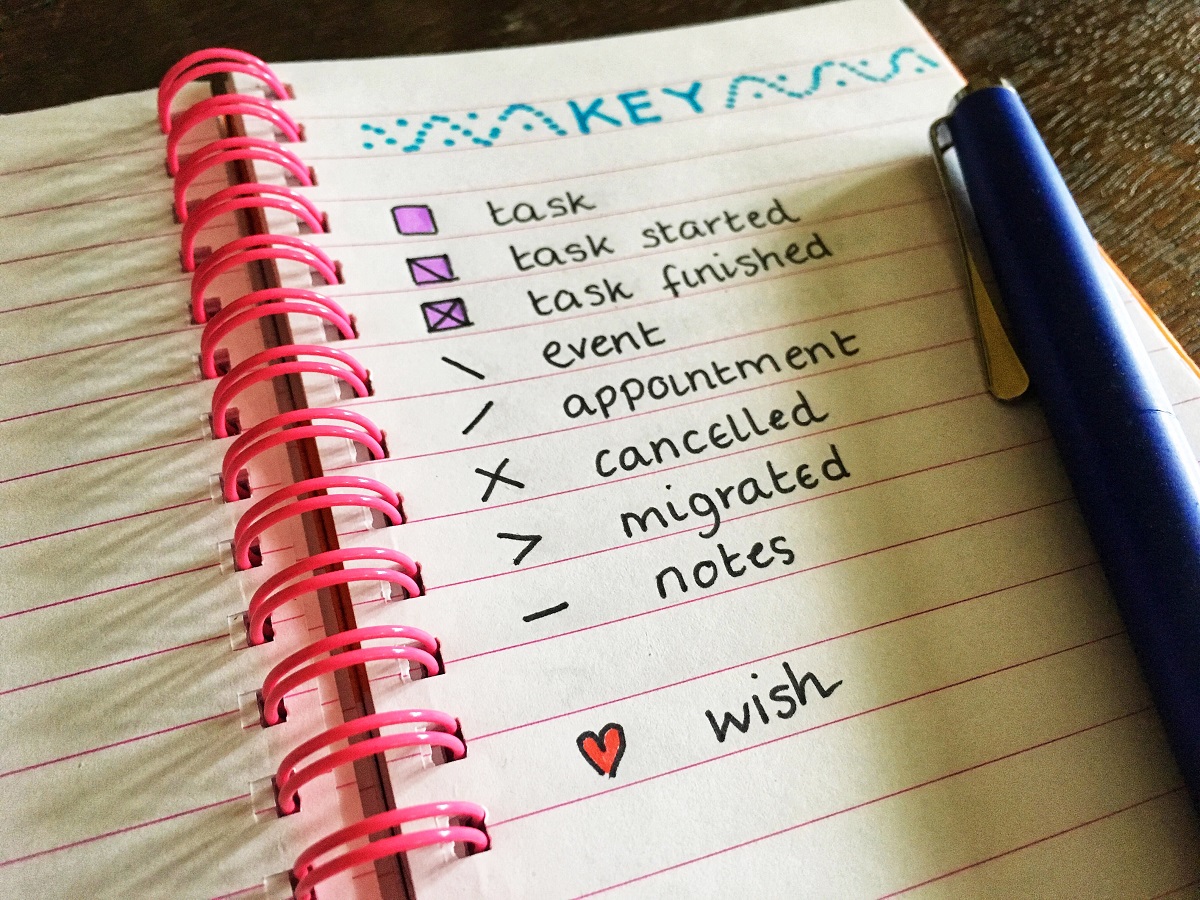 KEY
task
task started
task finished
\ event
/ appointment
X cancelled
> migrated
- notes
wish